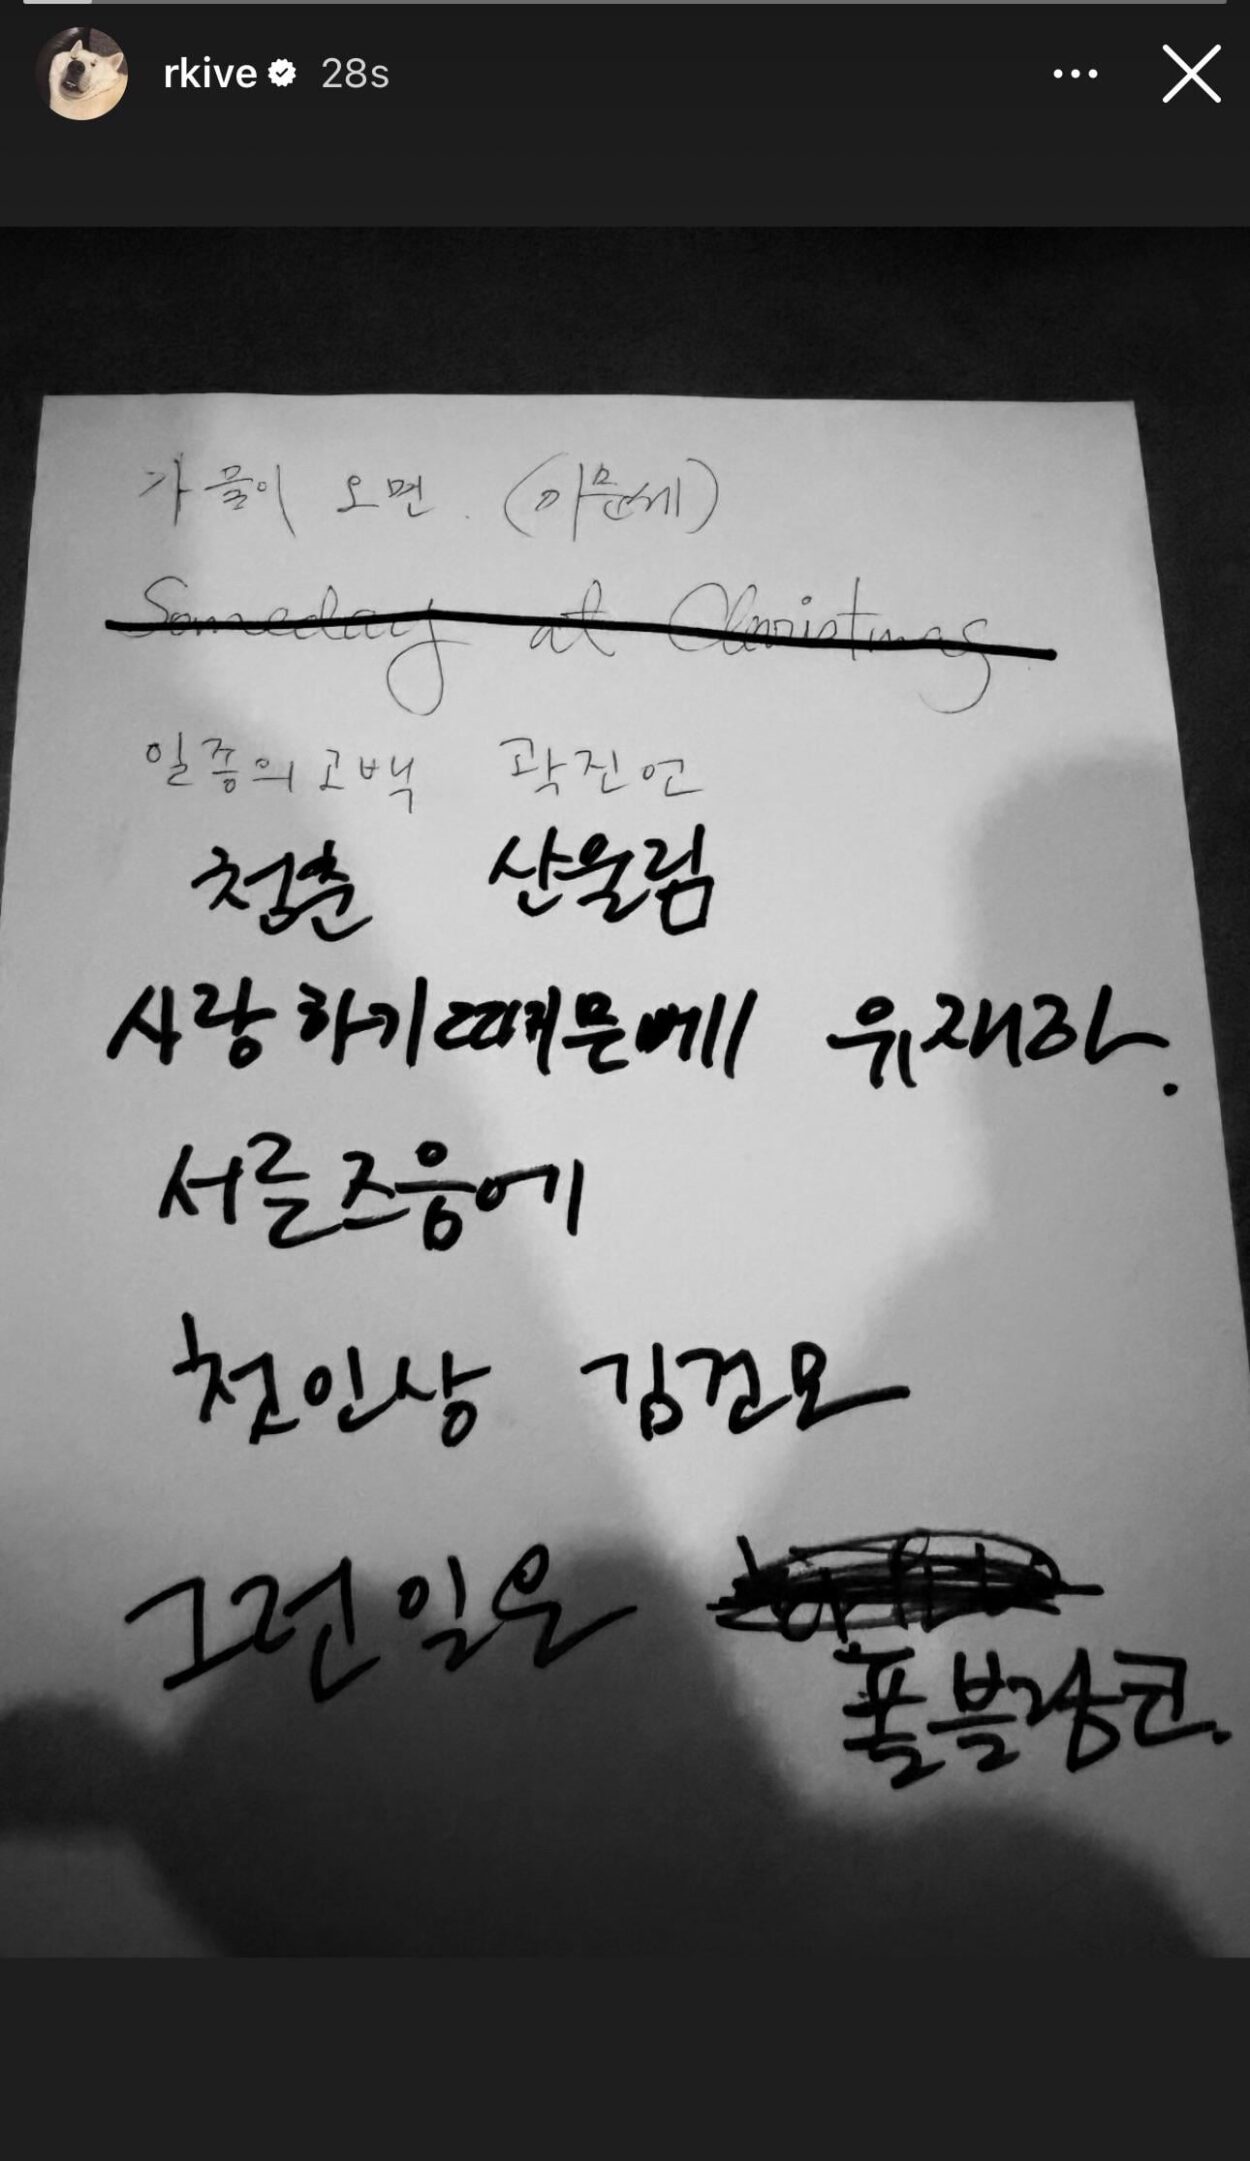 rkive 28s
가을이 오면. (이문세)
Someday at Christmas
일종의 고백 곽진언
청춘 산울림
사랑하기때문에 유재하.
서른즈음에
첫인상 김건모
그런일은
폴블랑코.